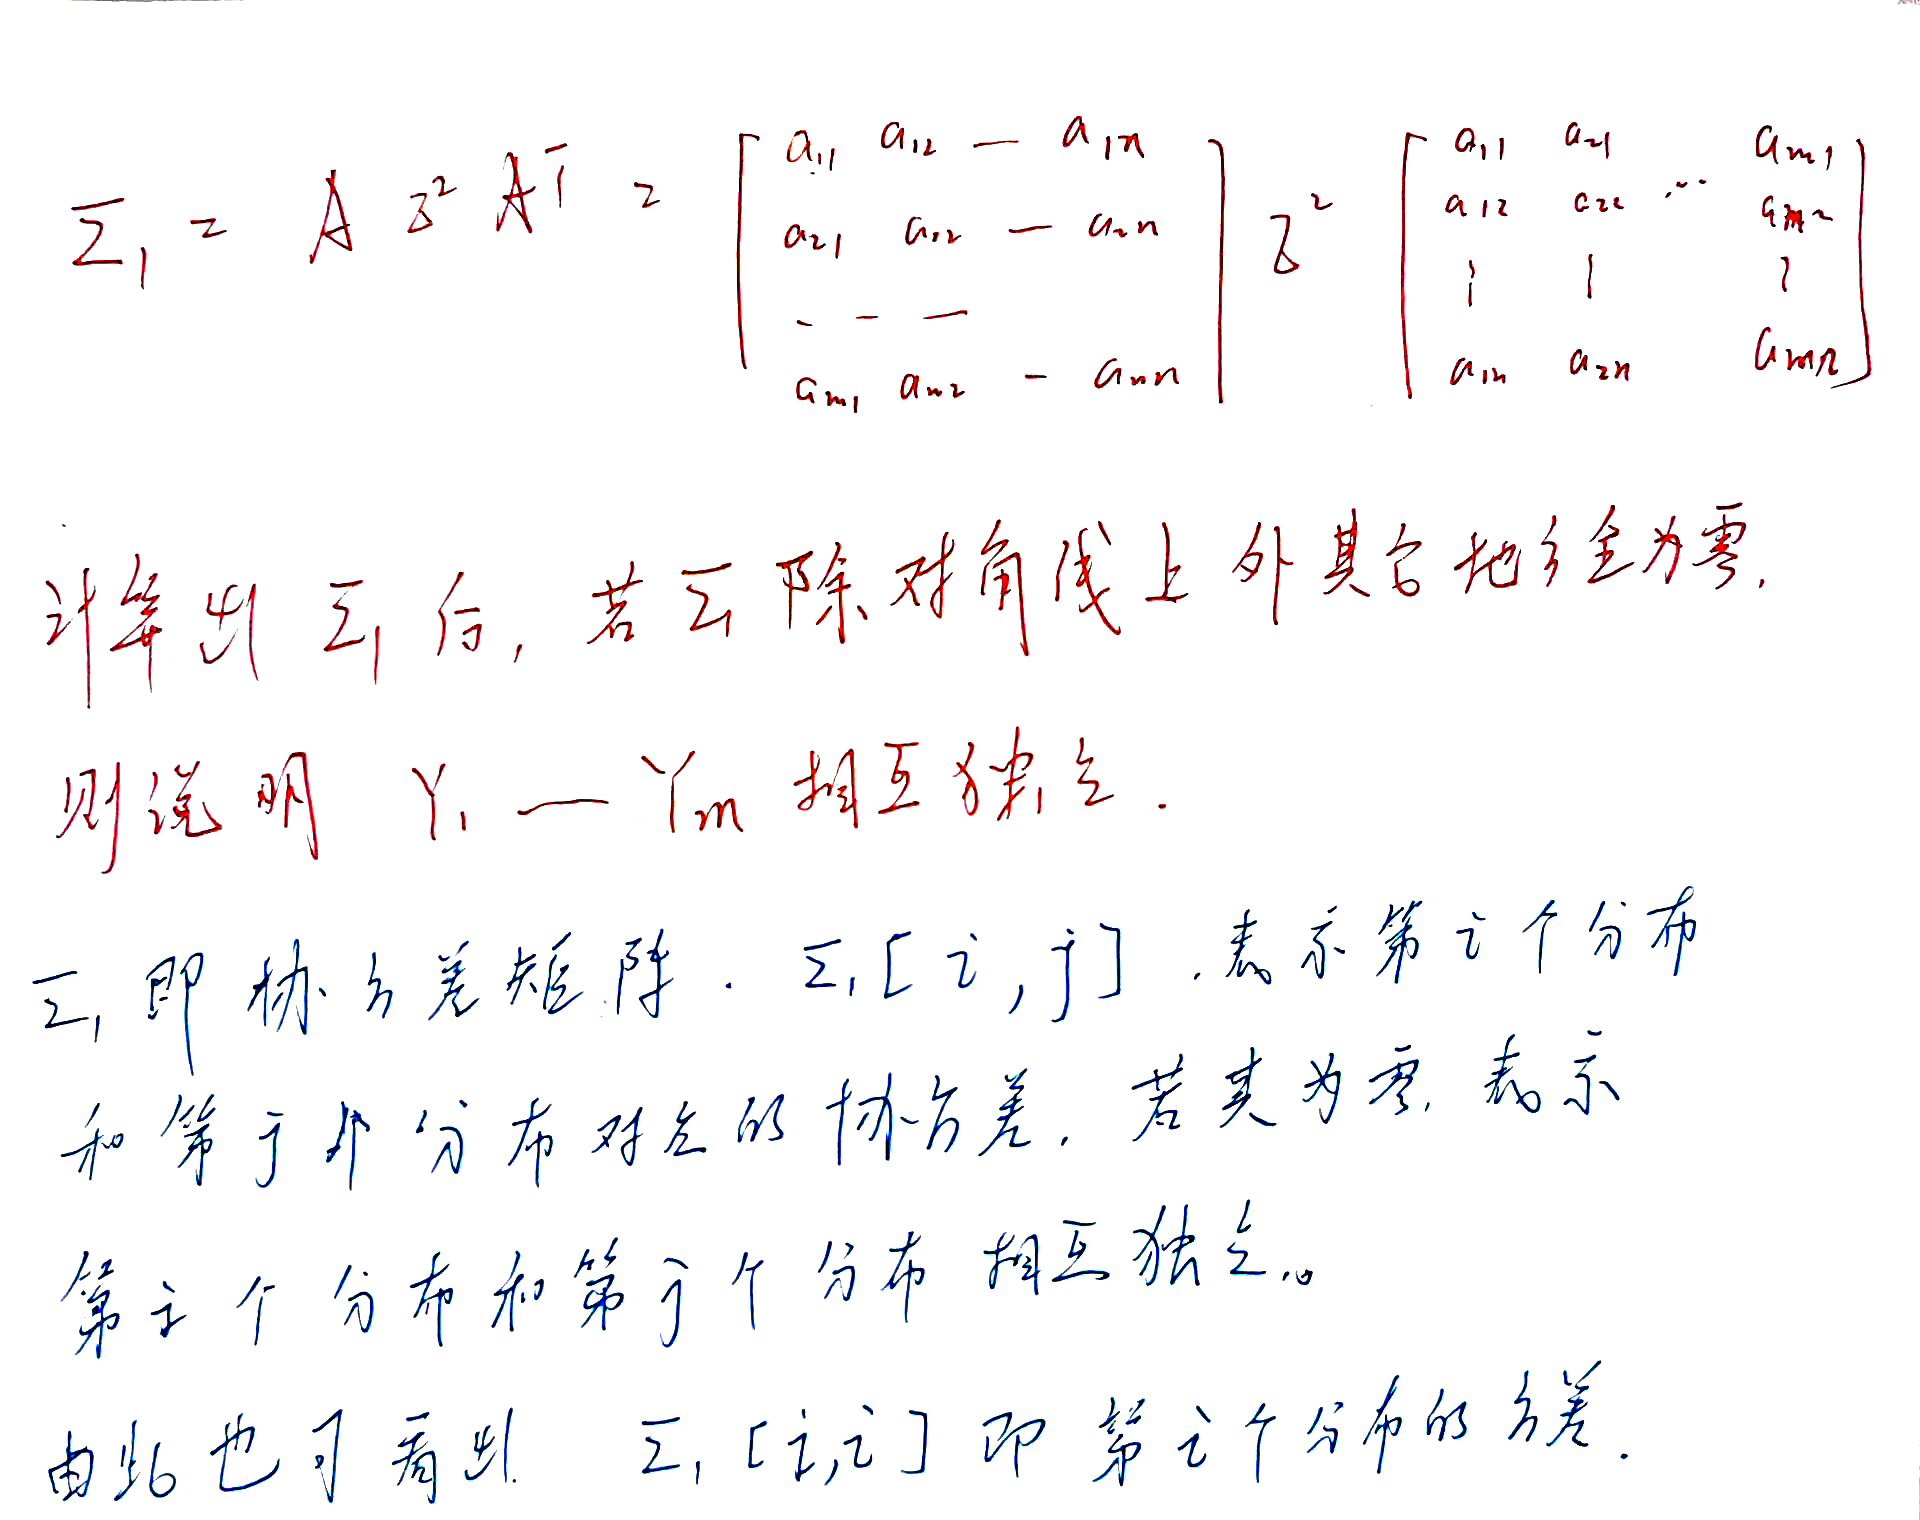 Σ₁ = A σ² Aᵀ = [ a₁₁ a₁₂ — a₁ₙ ; a₂₁ a₂₂ — a₂ₙ ; - - — ; aₘ₁ aₘ₂ - aₘₙ ] σ² [ a₁₁ a₂₁ aₘ₁ ; a₁₂ a₂₂ ... aₘ₂ ; ⁞ ⁞ ⁞ ; a₁ₙ a₂ₙ aₘₙ ]
计算出 Σ₁ 后, 若 Σ₁ 除对角线上外其它地方全为零,
则说明 Y₁ — Yₘ 相互独立.
Σ₁ 即协方差矩阵. Σ₁[i,j] .表示第i个分布
和第j个分布对应的协方差. 若其为零, 表示
第i个分布和第j个分布相互独立.。
由此也可看出 Σ₁[i,i] 即第i个分布的方差.